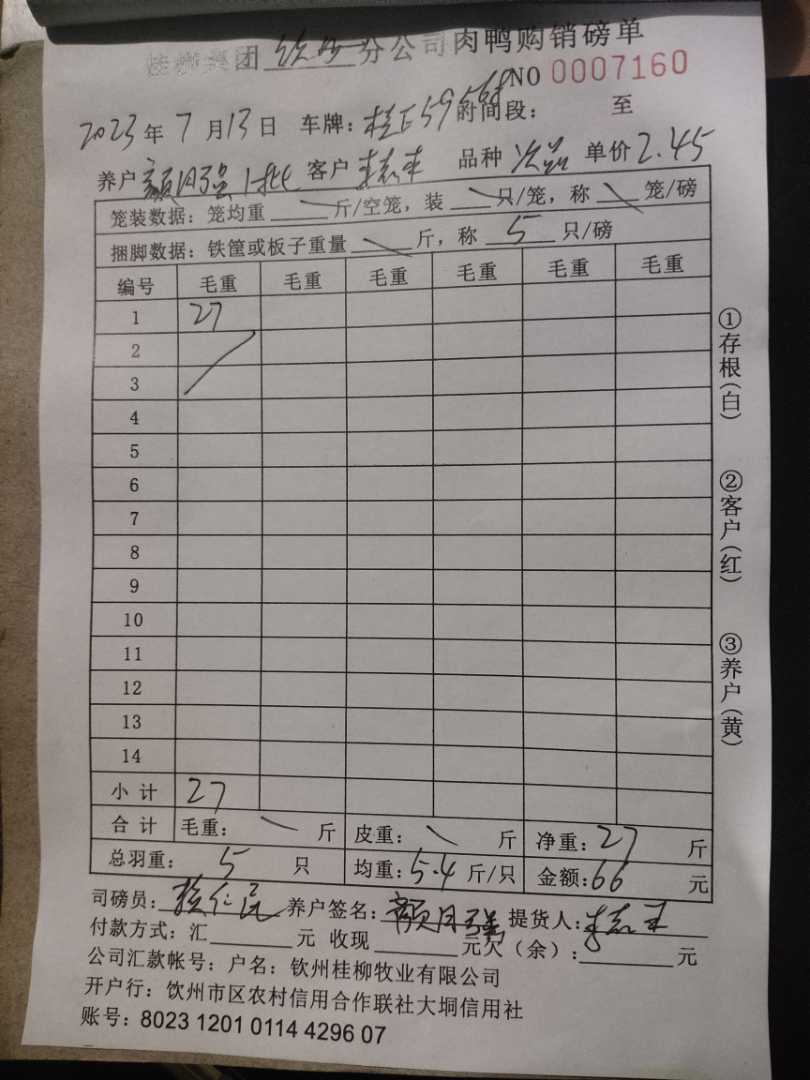 桂柳集团 钦州 分公司肉鸭购销磅单
NO 0007160
2023年7月13日 车牌: 时间段: 至
养户 客户 品种 次品 单价 2.45
笼装数据: 笼均重 斤/空笼, 装 只/笼, 称 笼/磅
捆脚数据: 铁筐或板子重量 斤, 称 5 只/磅
编号 毛重 毛重 毛重 毛重 毛重 毛重
1 27
2
3
4
5
6
7
8
9
10
11
12
13
14
小计 27
合计 毛重: 斤 皮重: 斤 净重: 27 斤
总羽重: 5 只 均重: 5.4 斤/只 金额: 66 元
司磅员: 养户签名: 提货人:
付款方式: 汇 元 收现 元欠(余): 元
公司汇款帐号: 户名: 钦州桂柳牧业有限公司
开户行: 钦州市区农村信用合作联社大垌信用社
账号: 8023 1201 0114 4296 07
①存根(白)
②客户(红)
③养户(黄)